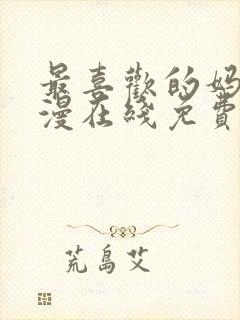 最喜歡的媽
漫在綫免費
荒島艾